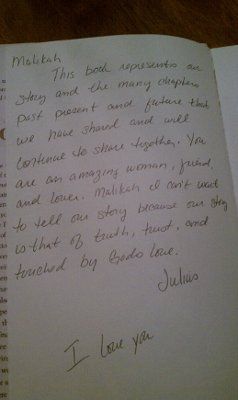 Malikah
This book represents our
story and the many chapters
past present and future that
we have shared and will
continue to share together. You
are an amazing woman, friend,
and lover. Malikah I can't wait
to tell our story because our story
is that of truth, trust, and
touched by Gods love.
Julius
I love you